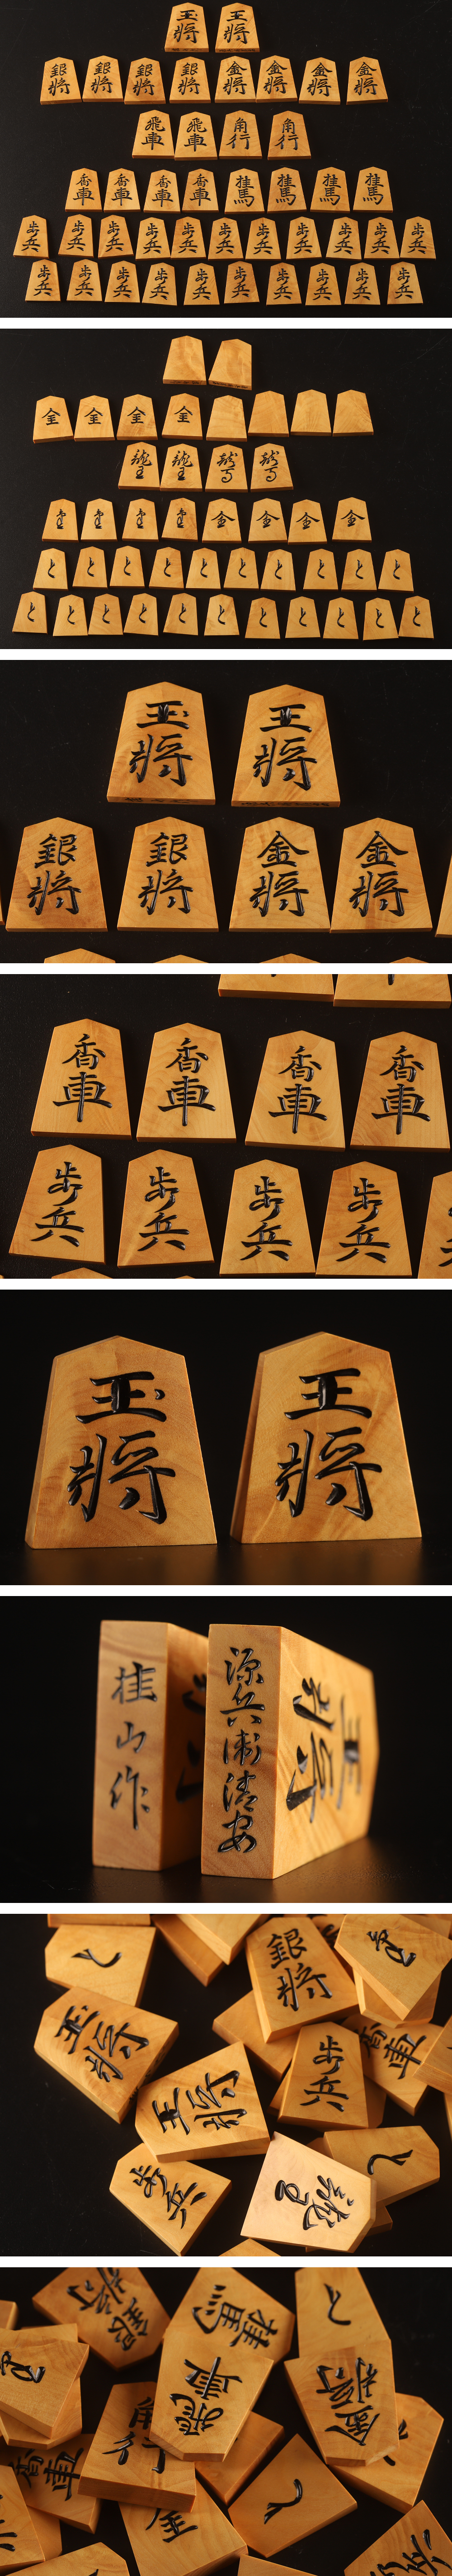 玉將 王將
銀將 銀將 銀將 銀將 金將 金將 金將 金將
飛車 飛車 角行 角行
香車 香車 香車 香車 桂馬 桂馬 桂馬 桂馬
歩兵 歩兵 歩兵 歩兵 歩兵 歩兵 歩兵 歩兵 歩兵 歩兵 歩兵
歩兵 歩兵 歩兵 歩兵 歩兵 歩兵 歩兵 歩兵 歩兵 歩兵
金 金 金 金
龍王 龍王 龍馬 龍馬
金 金 金 金
と と と と と と と と と と
と と と と と と と と と と と
玉將 王將
銀將 銀將 金將 金將
香車 香車 香車 香車
歩兵 歩兵 歩兵 歩兵
玉將 王將
桂山作
源兵衛清安
と 銀將
玉將 歩兵 香車
王將
歩兵 龍馬 と
銀將 桂馬 と
飛車 金將
香車 角行 と
金